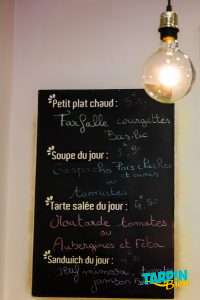 Petit plat chaud :
Farfalle courgettes
Basilic
Soupe du jour :
Gaspacho Pois chiches
ou
tomates
Tarte salée du jour : 4.50
Moutarde tomates
ou
Aubergines et Féta
Sandwich du jour :
mimosa
jambon
TARPIN
Bien